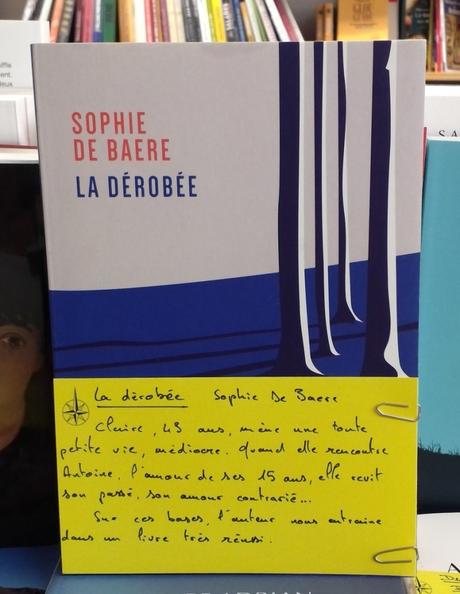 SOPHIE
DE BAERE
LA DÉROBÉE
La dérobée Sophie De Baere
Claire, 43 ans, mène une toute
petite vie, médiocre. Quand elle rencontre
Antoine, l'amour de ses 15 ans, elle revit
son passé, son amour contrarié...
Sur ces bases, l'auteur nous entraine
dans un livre très réussi.